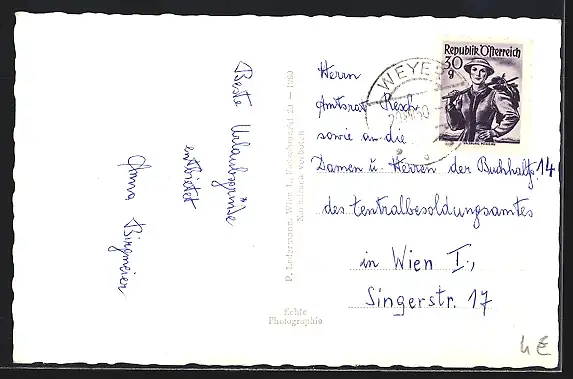 Beste Urlaubsgrüße
entbietet
Hanna Bingmeier
P. Ledermann, Wien I.,
Nachdruck verboten
Echte
Photographie
Republik Österreich
30
g
WEYE
Herrn
Amtsrat Resch
sowie an die
Damen u. Herren der Buchhaltg. 14
des Zentralbesoldungsamtes
in Wien I.,
Singerstr. 17
4 €